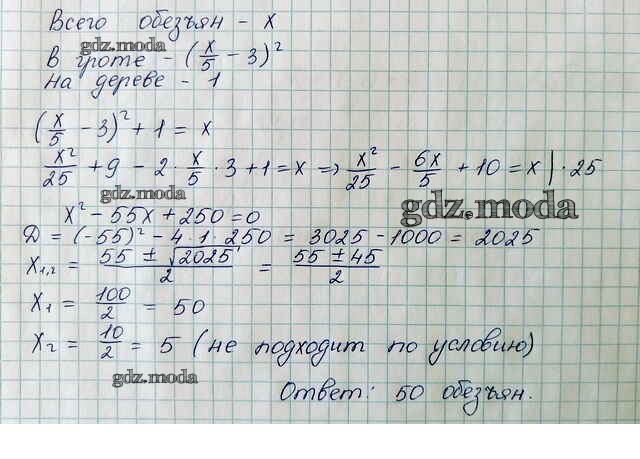 Всего обезъян - x
gdz.moda
В гроте - (x/5 - 3)²
На дереве - 1
(x/5 - 3)² + 1 = x
x²/25 + 9 - 2 · x/5 · 3 + 1 = x => x²/25 - 6x/5 + 10 = x | · 25
gdz.moda
gdz.moda
x² - 55x + 250 = 0
Д = (-55)² - 4 · 1 · 250 = 3025 - 1000 = 2025
x₁,₂ = (55 ± √2025)/2 = (55 ± 45)/2
x₁ = 100/2 = 50
x₂ = 10/2 = 5 (не подходит по условию)
gdz.moda
Ответ: 50 обезъян.